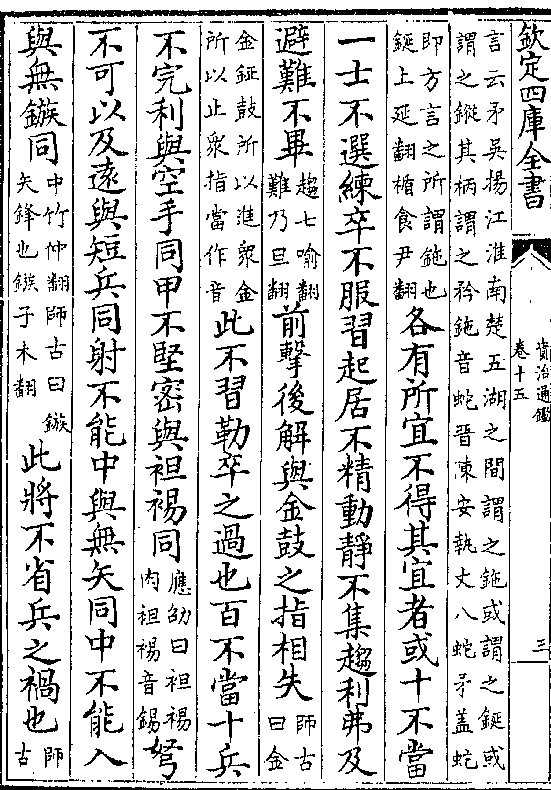 欽定四庫全書
資治通鑑
卷十五
三
言云矛吳揚江淮南楚五湖之間謂之鉇或謂之鋋或
謂之鏦其柄謂之矜鉇音蛇晉陳安執丈八蛇矛盖蛇
即方言之所謂鉇也
鋋上延翻楯食尹翻
各有所宜不得其宜者或十不當
一士不選練卒不服習起居不精動靜不集趨利弗及
避難不畢
趨七喻翻
難乃旦翻
前擊後解與金鼓之指相失
師古
曰金
金鉦鼓所以進衆金
所以止衆指當作音
此不習勒卒之過也百不當十兵
不完利與空手同甲不堅密與袒裼同
應劭曰袒裼
肉袒裼音錫
弩
不可以及遠與短兵同射不能中與無矢同中不能入
與無鏃同
中竹仲翻師古曰鏃
矢鋒也鏃子木翻
此將不省兵之禍也
師
古